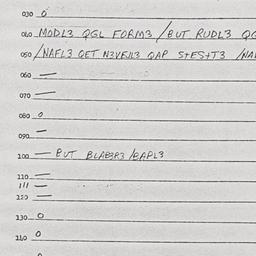 030 0
040 MODL3 QGL FORM3 / BUT RUDL3 QG
050 /NAFL3 QET N3VEJL3 QAP S+ES+T3 /NA
060 —
070 —
080 0
090 —
100 — BUT BLABBR3 /BAPL3
110 —
111 —
120 —
130 0
140 0